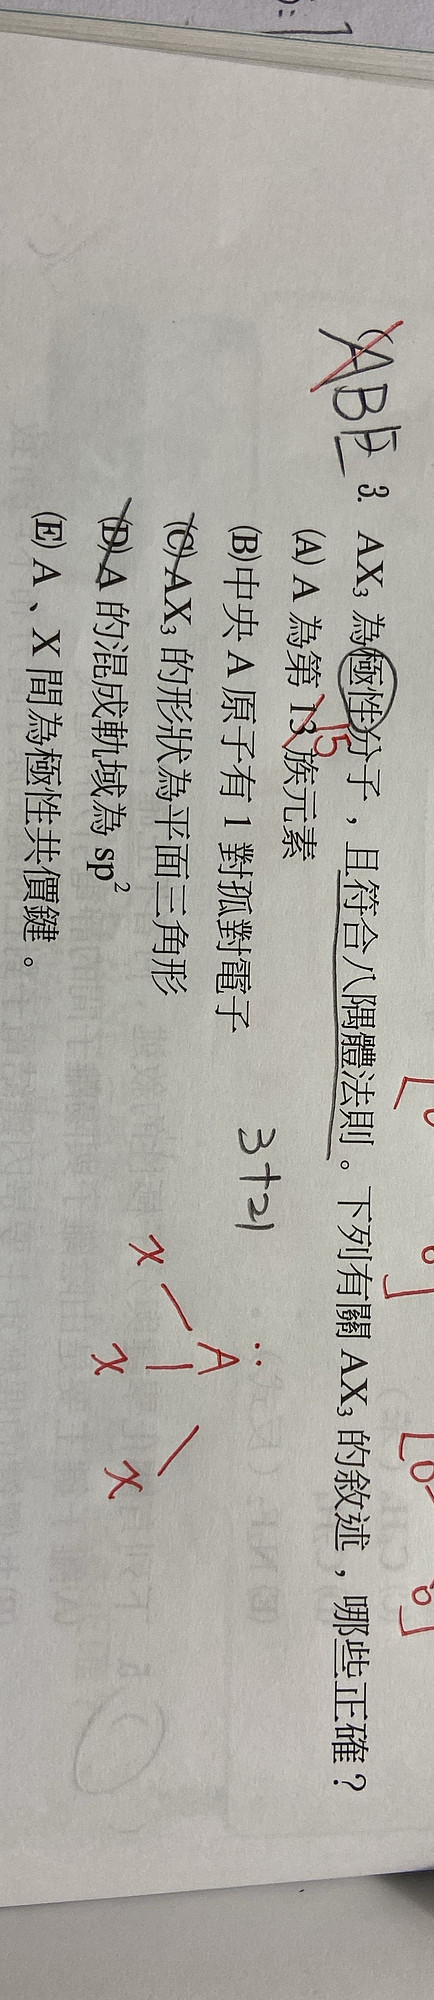 ABE
3. AX₃為極性分子，且符合八隅體法則。下列有關AX₃的敘述，哪些正確？
(A) A為第13族元素
15
(B)中央A原子有1對孤對電子
(C) AX₃的形狀為平面三角形
(D) A的混成軌域為sp²
(E) A、X間為極性共價鍵。
3+21
A
x x x